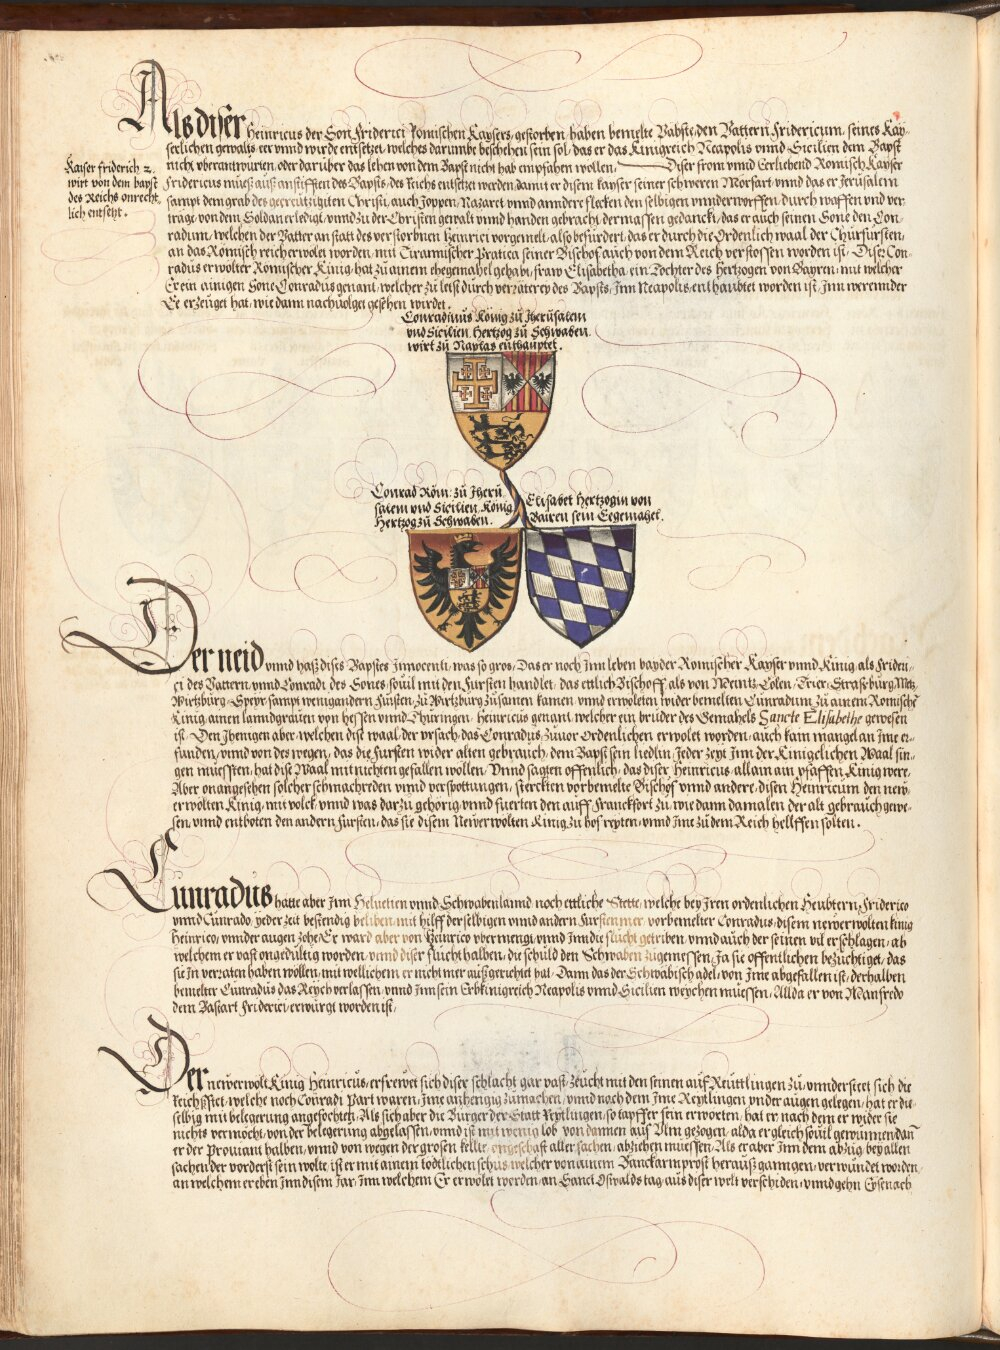 Als diser Heinricus der Son Friderici Römischen Kaysers, gestorben, haben bemelte Bäbste, den Vattern Fridericum, seines Kay-
serlichen gewalts eer vnnd wirde entsetzt, welches darumbe beschehen sein sol, das er das Kinigreich Neapolis vnnd Sicilien dem Bapst
nicht vberantwurten, oder darüber das lehen von dem Bapst nicht hab empfahen wollen, Diser from vnnd Eerliebend Romisch Kayser
Kaiser friderich 2.
wirt von dem bapst
des Reichs onrecht
lich entsetzt.
Fridericus mueß auß anstifften des Bapsts, des Reichs entsetzt werden damit er disem kayser seiner schweren Mörfart vnnd das er Jerusalem
sampt dem grab des gecreützigten Christi, auch Joppen, Nazaret vnnd anndere flecken den selbigen vnnderworffen, durch waffen vnd ver
träge von dem Soldan erledigt, vnnd zu der Christen gewalt vnnd handen gebracht dermassen gedanckt, das er auch seinen Sone den Con-
radum, welchen der Vatter an statt des verstorbnen Heinrici vorgemelt, also befürdert, das er durch die Ordenlich waal der Churfürsten,
an das Römisch reich erwolet worden, mit Tirannischer Pratica seiner Bischof auch von dem Reich verstossen worden ist, Diser Con-
radus erwolter Römischer Künig, hat zu ainem ehegemahel gehabt, fraw Elisabetha, ein Tochter des Hertzogen von Bayren, mit welcher
Er ein ainigen Sone Conradus genant, welcher zu letst durch verräterey des Bapsts, Jnn Neapolis enthaubtet worden ist, Jnn wereinder
Ee erzeuget hat, wie dann nachuolget gesehen wirdet.
Conradinus König zu Jherusalem
vnd Sicilien, Hertzog zu Schwaben,
wirt zu Naplas enthauptet.
Conrad Röm: zu Jheru
salem vnd Sicilien, König
Hertzog zu Schwaben.
Elisabet Hertzogin von
Bairen sein Eegemahel.
Der neid vnnd haß dises Bapstes Jnnocenti, was so gros, Das er noch Jnn leben bayder Romischer Kayser vnnd Künig, als Frideri-
ci des Vattern, vnnd Conradi des Sones, souil mit den Fursten handlet, das ettlich Bischoff als von Meintz, Cölen, Trier, Strasburg, Metz,
Wirtzburg, Speyr, sampt wenig andern Fürsten, zu Wirtzburg zusamen kamen, vnnd erwoleten wider bemelten Cunradum, zu ainem Romischen
Künig, ainen lanndgrauen von hessen vnnd Thüringen, Heinricus genant, welcher ein brüder des Gemahels Sancte Elisabethe gewesen
ist, Den Jhenigen aber, welchen dise waal, der vrsach, das Conradus, zuuor Ordenlichen erwolet worden, auch kain mangel an Jme er-
funden, vnnd von des wegen, das die Fursten wider alten gebrauch, dem Bapst sein liedlin, Jeder zeyt Jnn der Künigclichen Waal sin-
gen müessten, hat dise Waal mit nichten gefallen wollen, Vnnd sagten offentlich, das diser Heinricus, allain ain pfaffen Künig were,
Aber onangesehen solcher schmachreden vnnd verspottungen, sterckten vorbemelte Bischof vnnd andere, disen Heinricum den new-
erwolten Künig, mit volck, vnnd was dar zu gehörig, vnnd fuerten den auff Franckfort zu, wie dann damalen der alt gebrauch gewe-
sen, vnnd entboten den andern Fursten, das sie disem Newerwolten Künig zu hof reyten, vnnd Jme zu dem Reich hellffen solten.
Cunradus hatte aber Jnn Heluetien vnnd Schwabenlannd noch ettliche Stette, welche bey Jren ordenlichen Heubtern, Friderico
vnnd Cunrado, yeder zeit bestendig beliben, mit hilff der selbigen vnnd andern Fursten mer, vorbemelter Conradus, disem newerwolten künig
Heinrico, vnnder augen zohe, Er ward aber von Heinrico vbermengt, vnnd Jnn die flucht getriben, vnnd auch der seinen vil erschlagen, ab
welchem er vast ongedültig worden, vnnd diser flucht halben, die schuld den Schwaben zugemessen, Ja sie offentlichen bezüchtiget, das
sie Jn verraten haben wollen, mit wellichem er nicht mer außgerichtet hat, Dann das der Schwäbisch adel, von Jme abgefallen ist, derhalben
bemelter Cunradus das Reych verlassen, vnnd Jnn sein Erbkinigreich Neapolis vnnd Sicilien weychen muessen, Allda er von Manfredo
dem Bastart Friderici, erwürgt worden ist,
Der newerwolt Künig Heinricus, erfrewet sich diser schlacht gar vast, Zeucht mit den seinen auf Reuttlingen zu, vnnderstet sich die
Reichsstet, welche noch Conradi Part waren, Jme anhengig zumachen, vnnd nach dem Jme Reytlingen vnder augen gelegen, hat er die-
selbig mit belegerung angefochten, Als sich aber die Burger der Statt Reytlingen, so tapffer sein erworten, hat er, nach dem er wider sie
nichts vermöcht, von der belegerung abgelassen, vnnd ist mit wenig lob von dannen auf Vlm gezogen, alda er gleich souil gewunnen, dan
er der Prouiant halben, vnnd von wegen der grosen kellte, ongeschaft aller sachen, abziehen muessen, Als er aber Jnn dem abzug, bey allen
sachen der vorderst sein wolte, ist er mit ainem tödtlichen schus, welcher von ainem Banckarmprost heraus ganngen, verwundet worden,
an welchem er eben Jnn disem Jar, Jnn welchem Er erwölet worden, an Sanct Oswalds tag, aus diser welt verschiden, vnnd gehn Eysenach